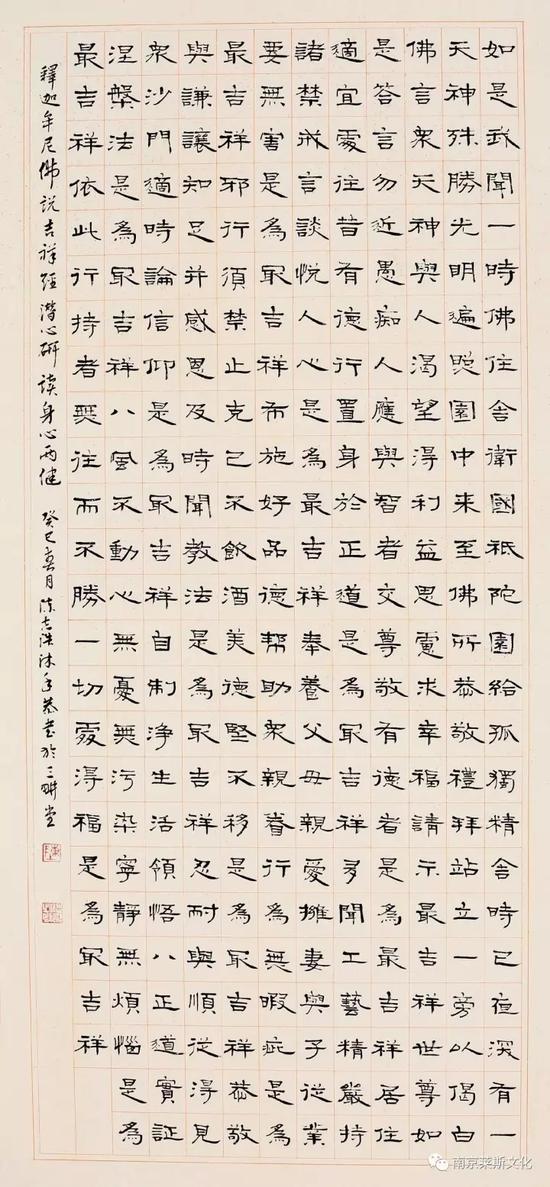 如是我聞一時佛住舍衛國祇陀園給孤獨精舍時已夜深有一
天神殊勝光明遍照園中來至佛所恭敬禮拜站立一旁以偈白
佛言眾天神與人渴望得利益思慮求幸福請示最吉祥世尊如
是答言勿近愚痴人應與智者交尊敬有德者是為最吉祥居住
適宜處往昔有德行置身於正道是為最吉祥多聞工藝精嚴持
諸禁戒言談悅人心是為最吉祥奉養父母親愛擁妻與子從業
要無害是為最吉祥布施好品德幫助眾親眷行為無瑕疵是為
最吉祥邪行須禁止克己不飲酒美德堅不移是為最吉祥恭敬
與謙讓知足并感恩及時聞教法是為最吉祥忍耐與順從得見
眾沙門適時論信仰是為最吉祥自制淨生活領悟八正道實証
涅槃法是為最吉祥八風不動心無憂無污染寧靜無煩惱是為
最吉祥依此行持者無往而不勝一切處得福是為最吉祥
釋迦牟尼佛說吉祥經潛心研讀身心兩健 癸巳月陳志浩沐手恭書於三畊堂
南京莱斯文化